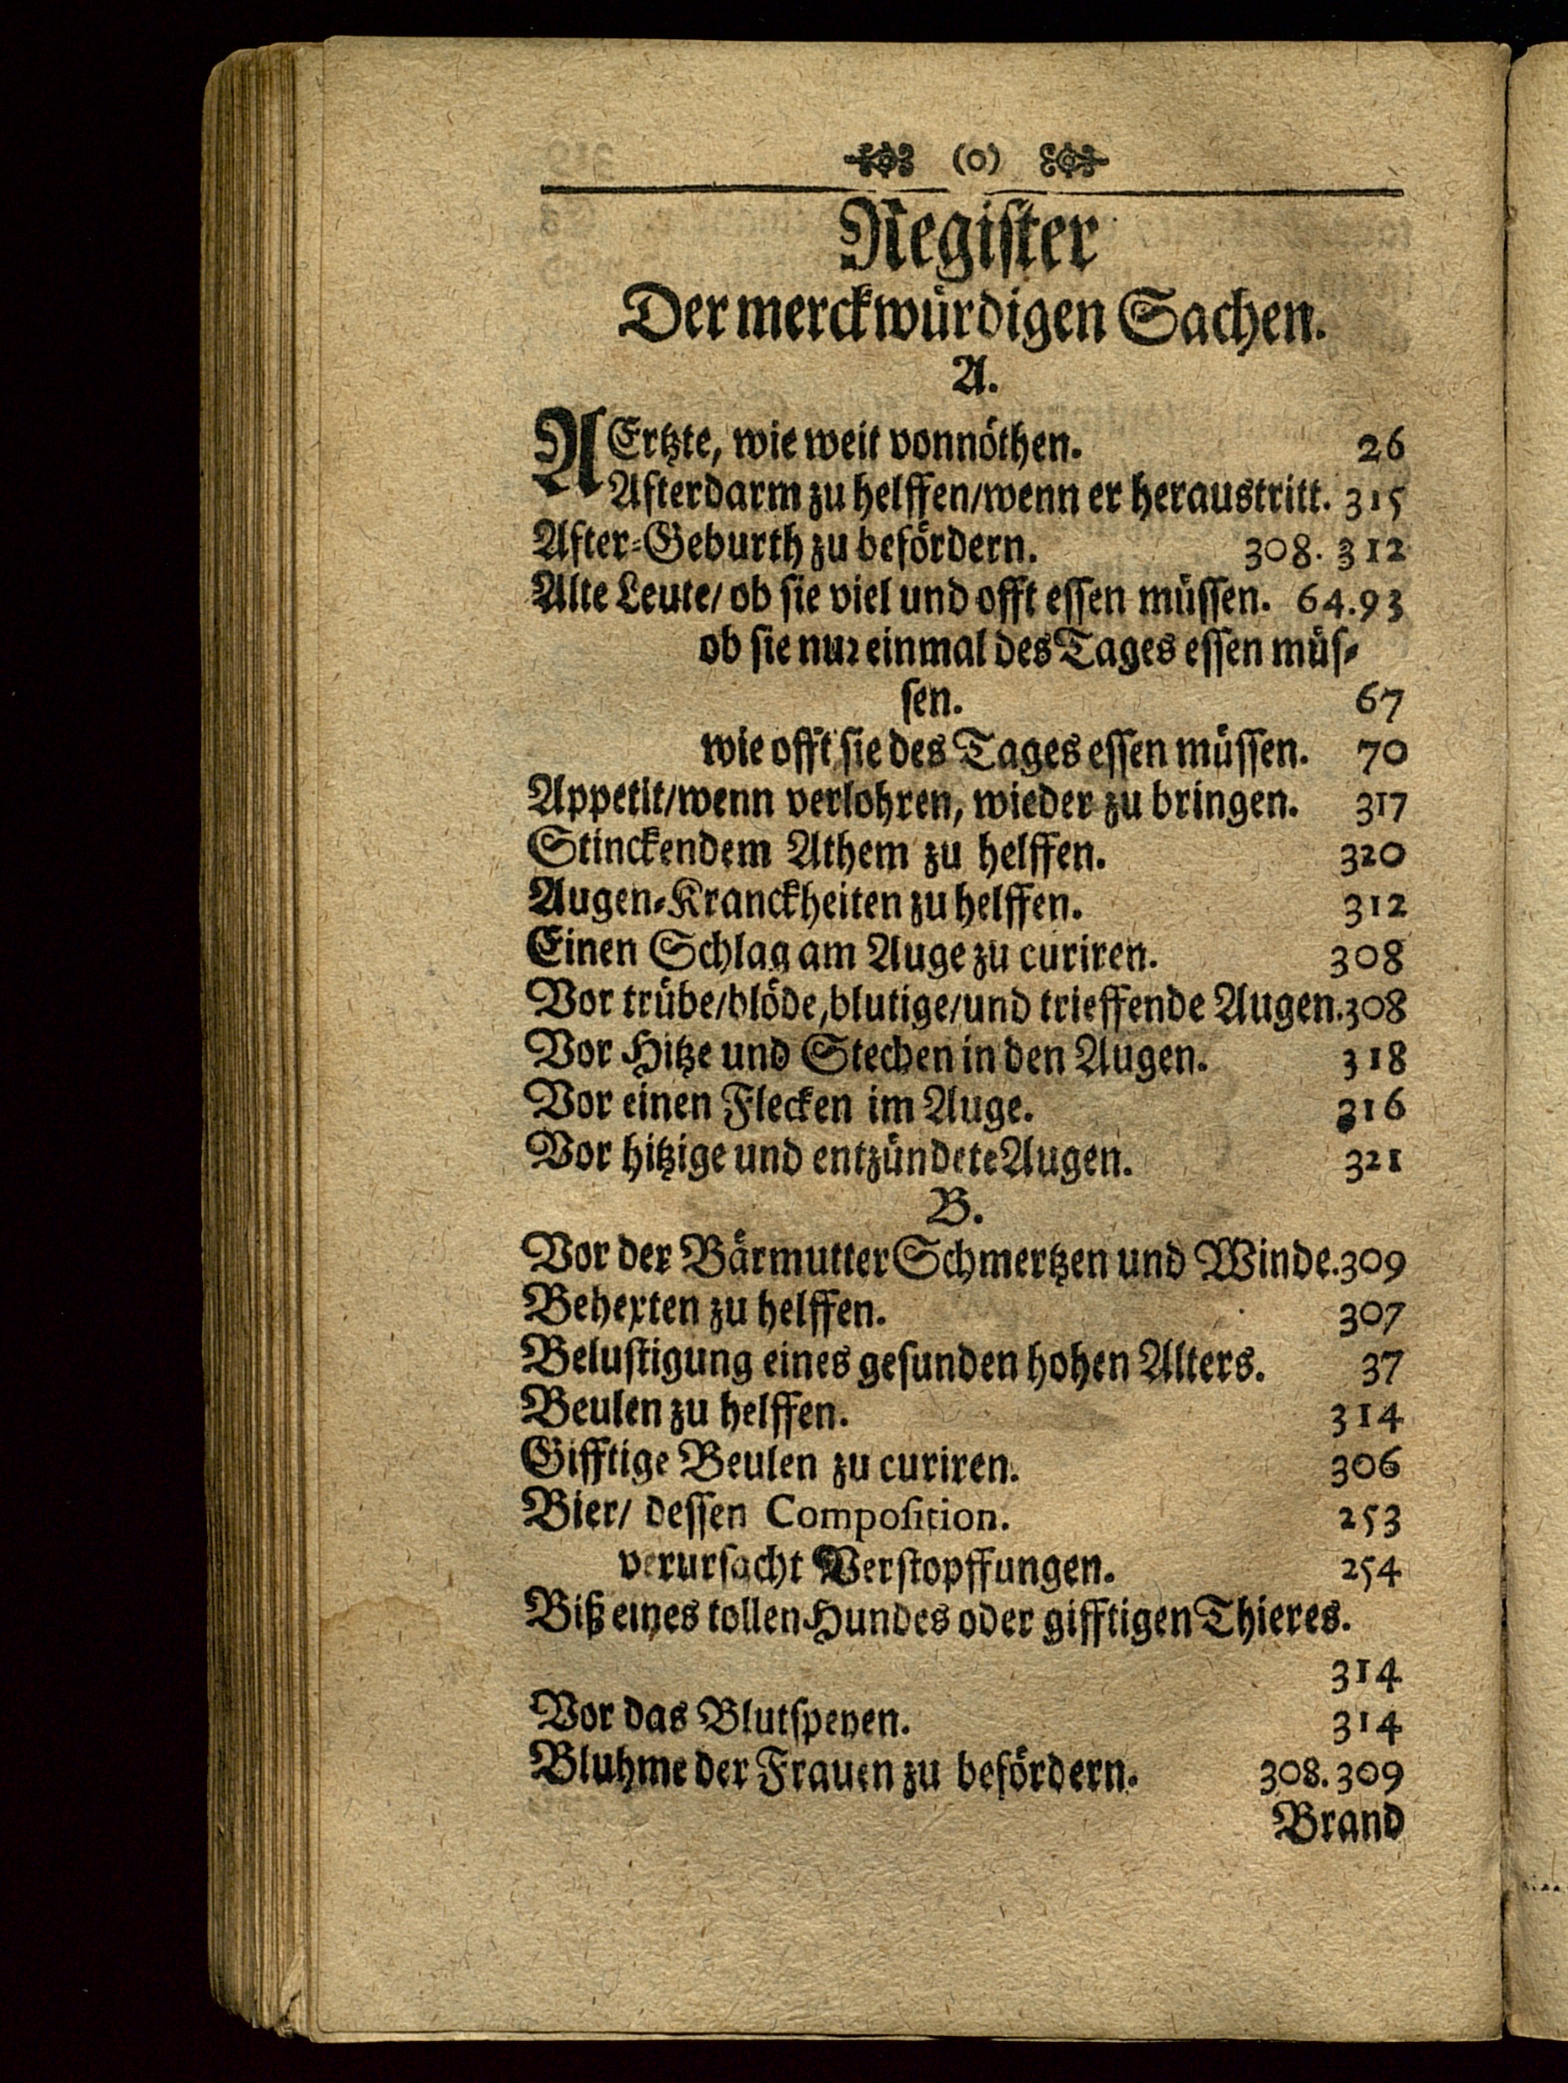 (o)
Register
Der merckwürdigen Sachen.
A.
AErtzte, wie weit vonnöthen. 26
Afterdarm zu helffen/wenn er heraustritt. 315
After-Geburth zu befördern. 308. 312
Alte Leute/ ob sie viel und offt essen müssen. 64.93
ob sie nur einmal des Tages essen müs-
sen. 67
wie offt sie des Tages essen müssen. 70
Appetit/wenn verlohren, wieder zu bringen. 317
Stinckendem Athem zu helffen. 320
Augen-Kranckheiten zu helffen. 312
Einen Schlag am Auge zu curiren. 308
Vor trübe/blöde,blutige/und trieffende Augen.308
Vor Hitze und Stechen in den Augen. 318
Vor einen Flecken im Auge. 316
Vor hitzige und entzündete Augen. 321
B.
Vor der Bärmutter Schmertzen und Winde.309
Behexten zu helffen. 307
Belustigung eines gesunden hohen Alters. 37
Beulen zu helffen. 314
Gifftige Beulen zu curiren. 306
Bier/ dessen Composition. 253
verursacht Verstopffungen. 254
Biß eines tollen Hundes oder gifftigen Thieres.
314
Vor das Blutspeyen. 314
Bluhme der Frauen zu befördern. 308. 309
Brand